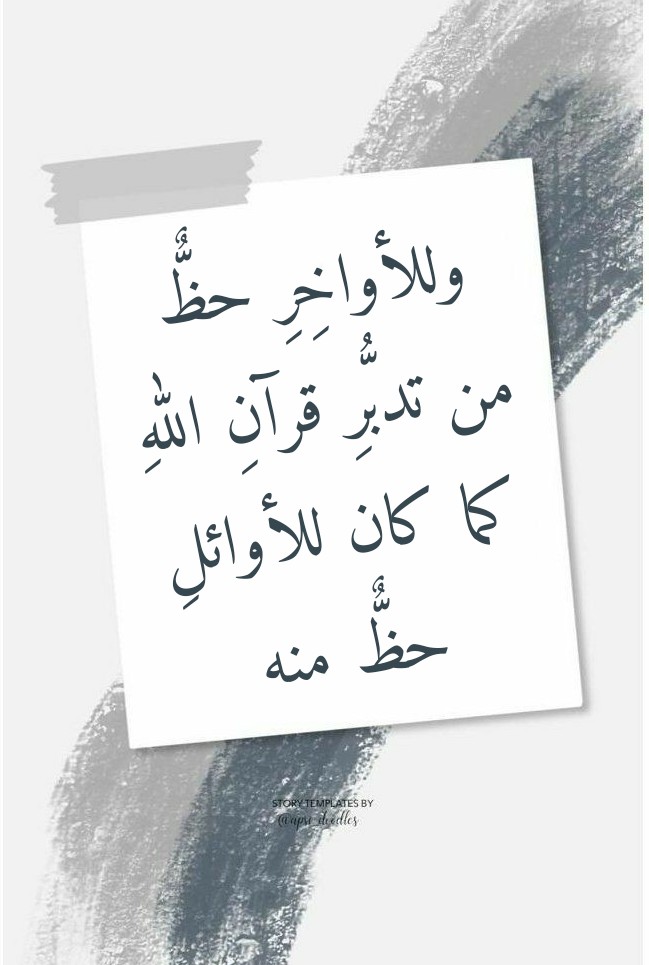 وللأواخِرِ حظٌّ
من تدبُّرِ قرآنِ اللهِ
كما كان للأوائلِ
حظٌّ منه
STORY TEMPLATES BY